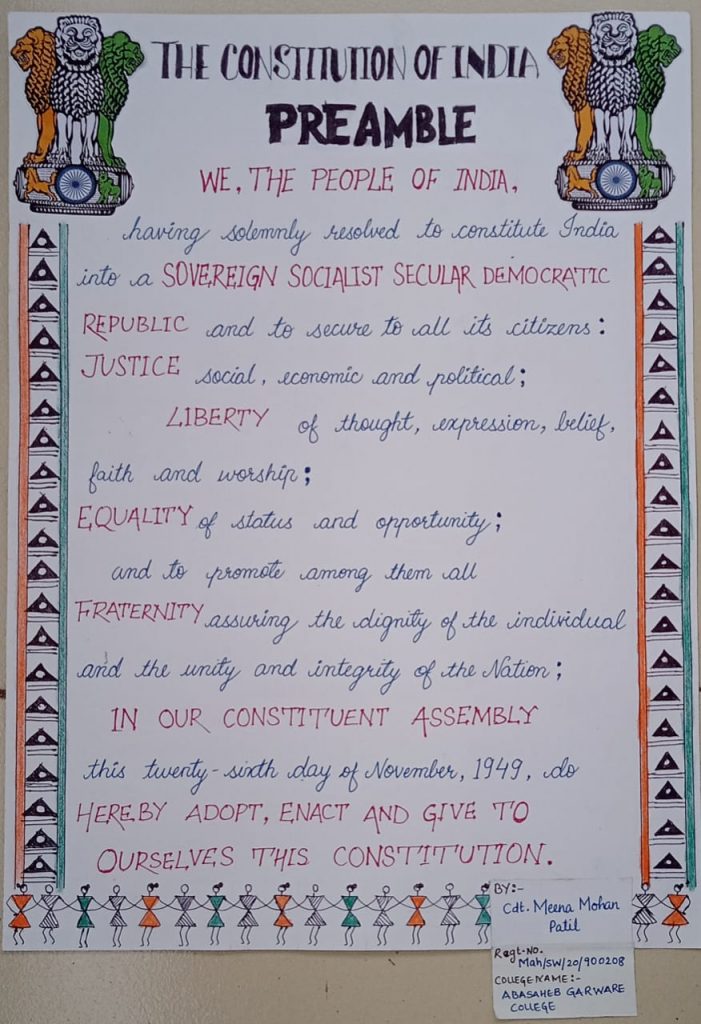 THE CONSTITUTION OF INDIA
PREAMBLE
WE, THE PEOPLE OF INDIA,
having solemnly resolved to constitute India
into a SOVEREIGN SOCIALIST SECULAR DEMOCRATIC
REPUBLIC and to secure to all its citizens:
JUSTICE social, economic and political;
LIBERTY of thought, expression, belief,
faith and worship;
EQUALITY of status and opportunity;
and to promote among them all
FRATERNITY assuring the dignity of the individual
and the unity and integrity of the Nation;
IN OUR CONSTITUENT ASSEMBLY
this twenty-sixth day of November, 1949, do
HEREBY ADOPT, ENACT AND GIVE TO
OURSELVES THIS CONSTITUTION.
BY:-
Cdt. Meena Mohan
Patil
Regt-No.
Mah/SW/20/900208
COLLEGE NAME:-
ABASAHEB GARWARE
COLLEGE